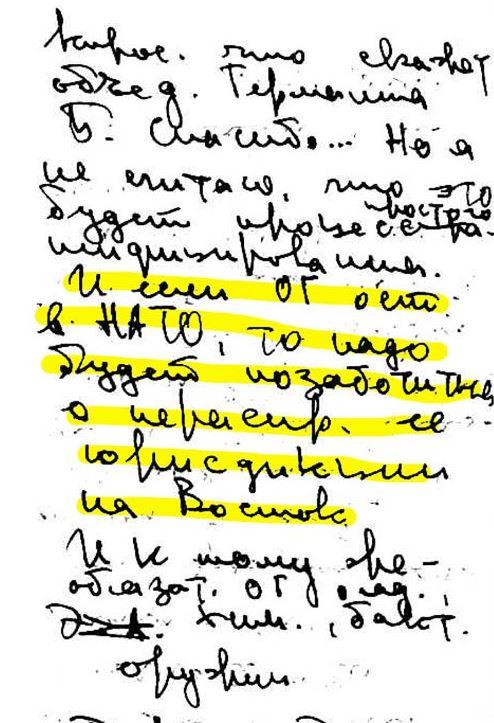 вопрос. что скажет
объед. Германия
Б. Спасибо... Но я
не считаю, что это
будет процесс простого
ницирования.
И если ОГ ост.
в НАТО, то надо
будет позаботиться
о нераспр. ее
юрисдикции
на Восток
И к тому же –
обязат. ОГ
хим., бакт.
оружия